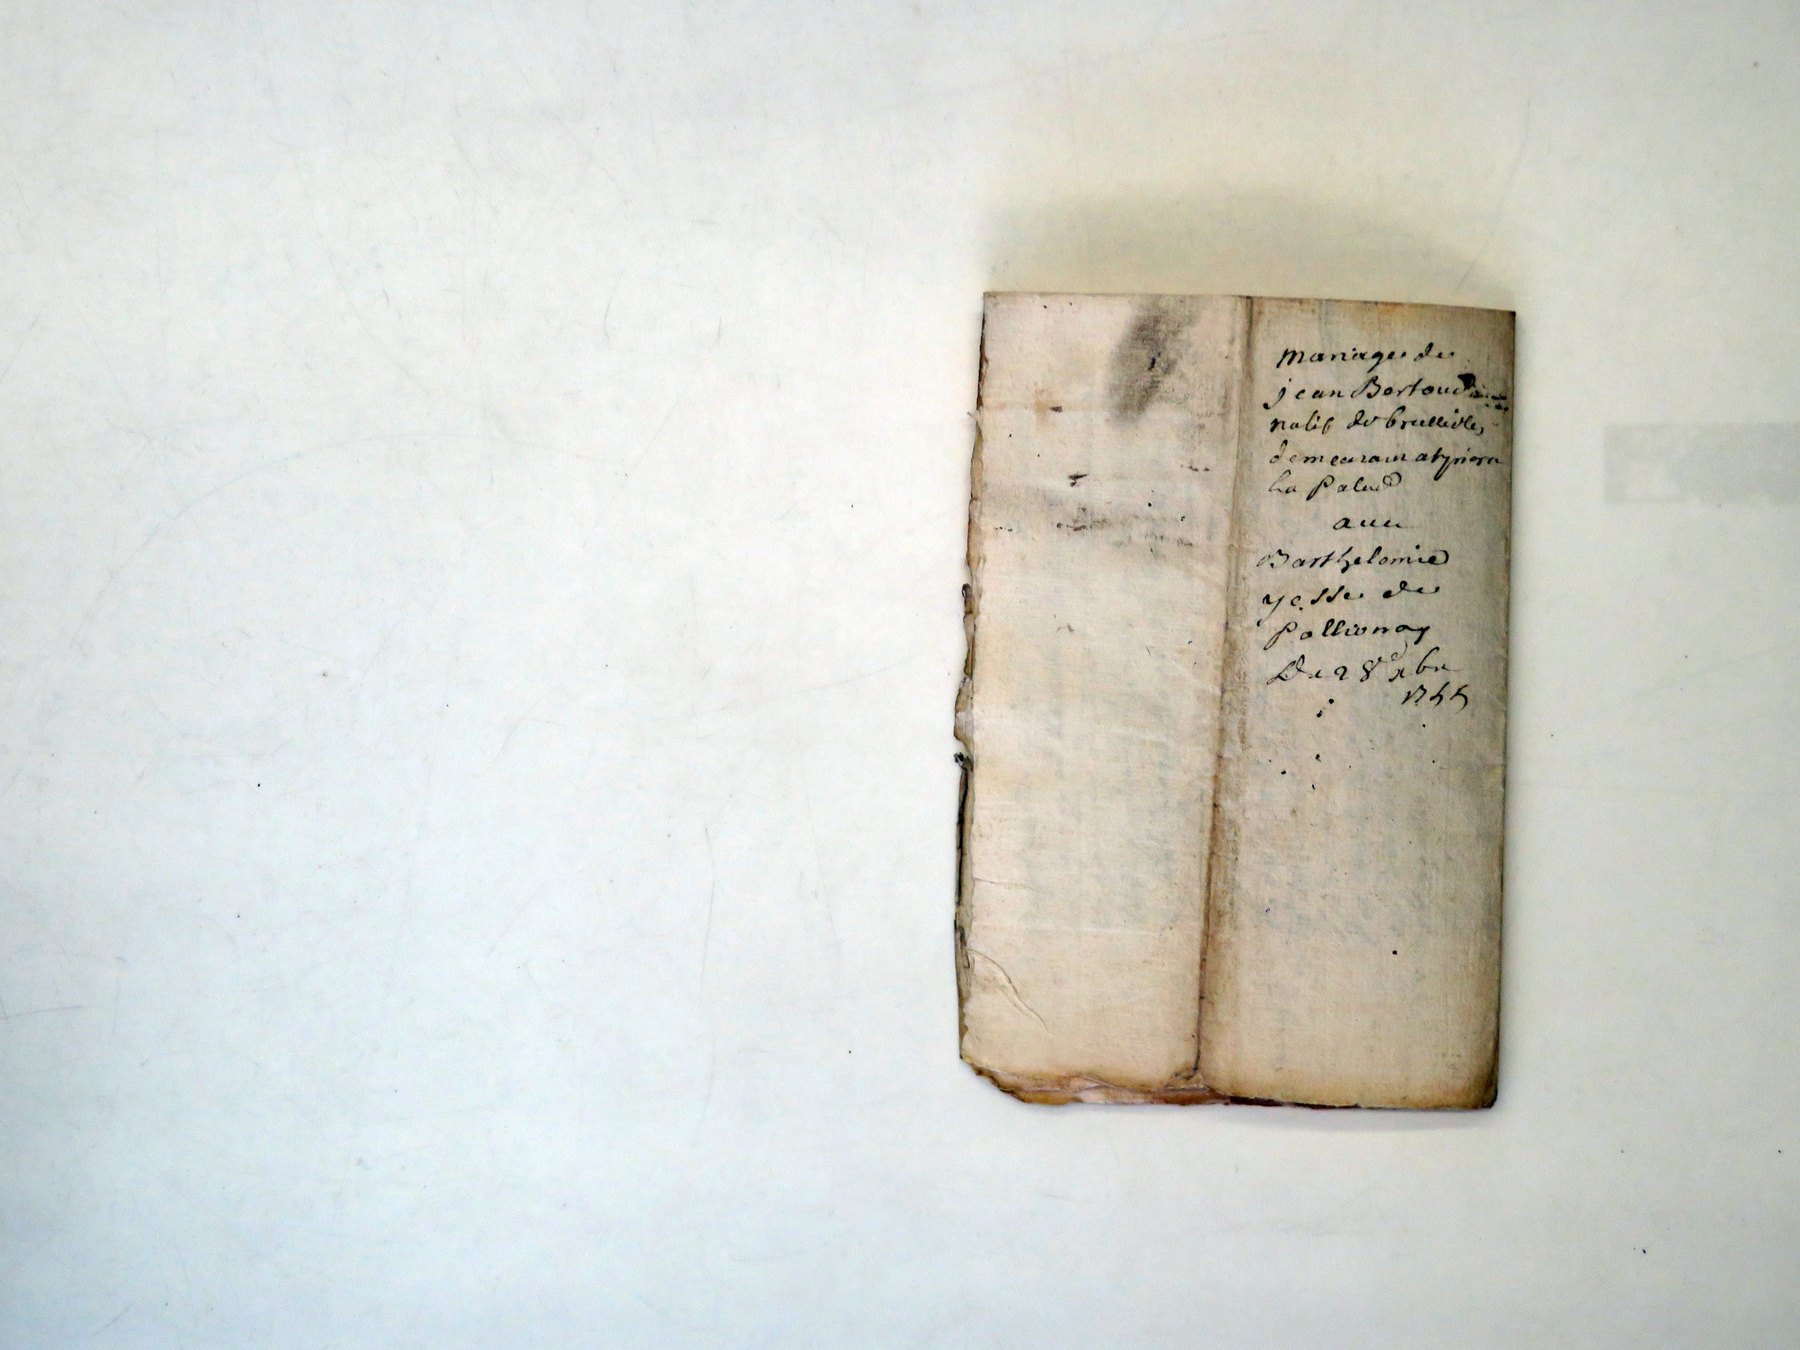 mariage de
jean Bertoud
natif de brullioles
demeurant a
La Palud
avec
Barthelomie
yesse de
Pollionay
Du 28e xbre
1755